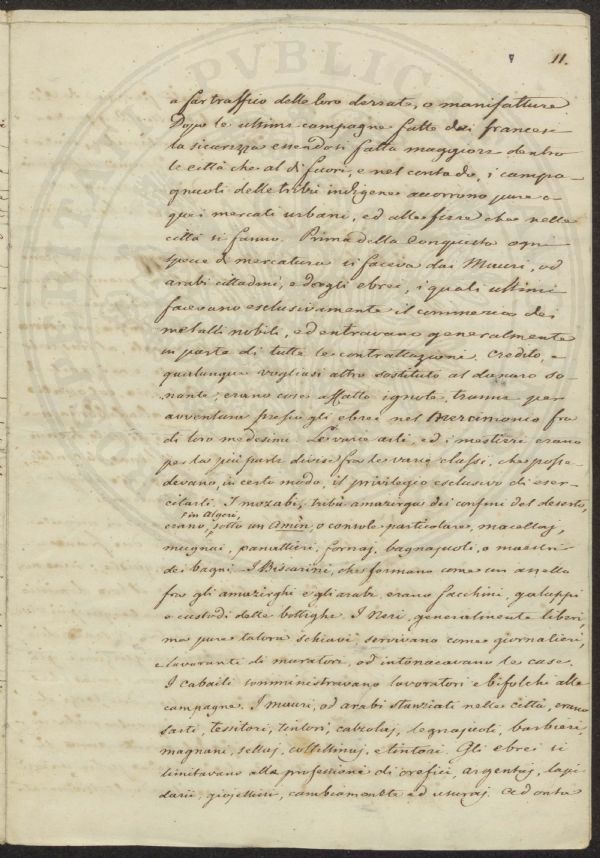 11.
a far traffico delle loro derrate, o manifatture
Dopo le ultime campagne fatte dai francesi
la sicurezza essendosi fatta maggiore dentro
le città che al di fuori, e nel contado, i campa-
gnuoli delle tribù indigene accorrono pure a
quei mercati urbani, ed alle fiere che nelle
città si fanno. Prima della Conquista ogni
specie di mercatura si faceva dai Mauri, od
arabi cittadini, e dagli ebrei, i quali ultimi
facevano esclusivamente il commercio dei
metalli nobili, ed entravano generalmente
in parte di tutte le contrattazioni. Credito, e
qualunque vogliasi altro sostituto al danaro so
nante, erano cose affatto ignote, tranne per
avventura presso gli ebrei nel Mercimonio fra
di loro medesimi. Le varie arti, ed i mestieri erano
per la più parte divisi fra le varie classi, che posse-
devano, in certo modo, il privilegio esclusivo di eser-
citarli. I mozabi, tribù amazirga dei confini del deserto,
in Algeri,
erano, sotto un Amin, o console particolare, macellaj,
mugnai, panattieri, fornaj, bagnajuoli, o maestri
dei bagni. I Biscarini, che formano come un anello
fra gli amazirghi e gli arabi, erano facchini, galuppi
e custodi delle botteghe. I Neri, generalmente liberi,
ma pure talora schiavi, servivano come giornalieri,
e lavoranti di muratori, od intonacavano le case.
I cabaili somministravano lavoratori e bifolchi alle
campagne. I mauri, od arabi stanziati nelle città, erano
sarti, tessitori, tintori, calzolaj, legnajuoli, barbieri
magnani, sellaj, coltellinaj, e tintori. Gli ebrei si
limitavano alle professioni di orefici, argentaj, lapi
darii, giojellieri, cambiamonete ed usuraj. Ad onta